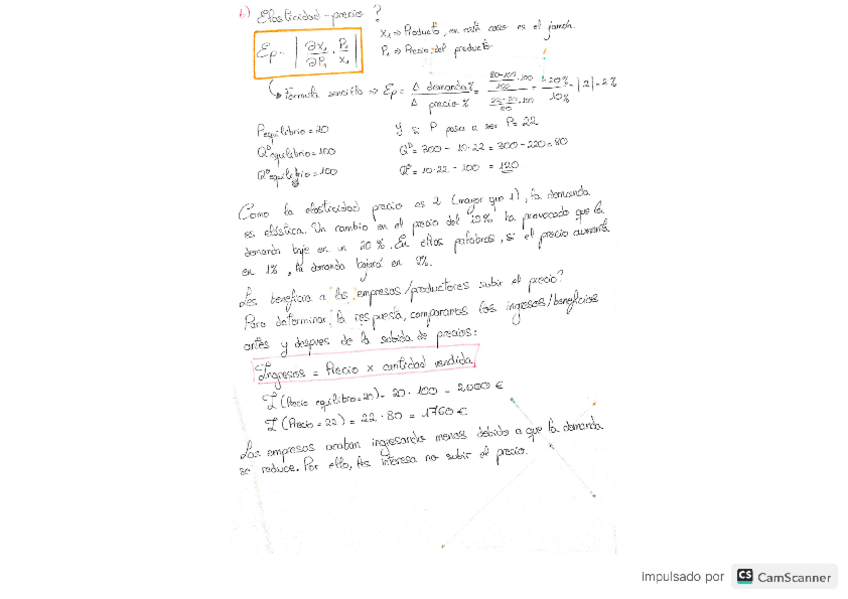 b) Elasticidad-precio?
Ep = | ∂X₁/∂P₁ · P₁/X₁ |
X₁ => Producto, en este caso es el jamón.
P₁ => Precio del producto
Formula sencilla => Ep = Δ demanda% / Δ precio % = (80-100/100 · 100) / (22-20/20 · 100) = -20% / 10% = |2| = 2%
Pequilibrio = 20
Y si P pasa a ser P = 22
Qᴰequilibrio = 100
Qᴰ = 300 - 10·22 = 300 - 220 = 80
Qᵒequilibrio = 100
Qᵒ = 10·22 - 100 = 120
Como la elasticidad precio es 2 (mayor que 1), la demanda
es elástica. Un cambio en el precio del 10% ha provocado que la
demanda baje en un 20%. En otras palabras, si el precio aumenta
en 1%, la demanda bajará en 2%.
¿Les beneficia a las empresas/productores subir el precio?
Para determinar la respuesta, comparamos los ingresos/beneficios
antes y despues de la subida de precios:
Ingresos = Precio x cantidad vendida
I (Precio equilibrio=20) = 20 · 100 = 2000 €
I (Precio = 22) = 22 · 80 = 1760 €
Las empresas acaban ingresando menos debido a que la demanda
se reduce. Por ello, les interesa no subir el precio.
Impulsado por CS CamScanner